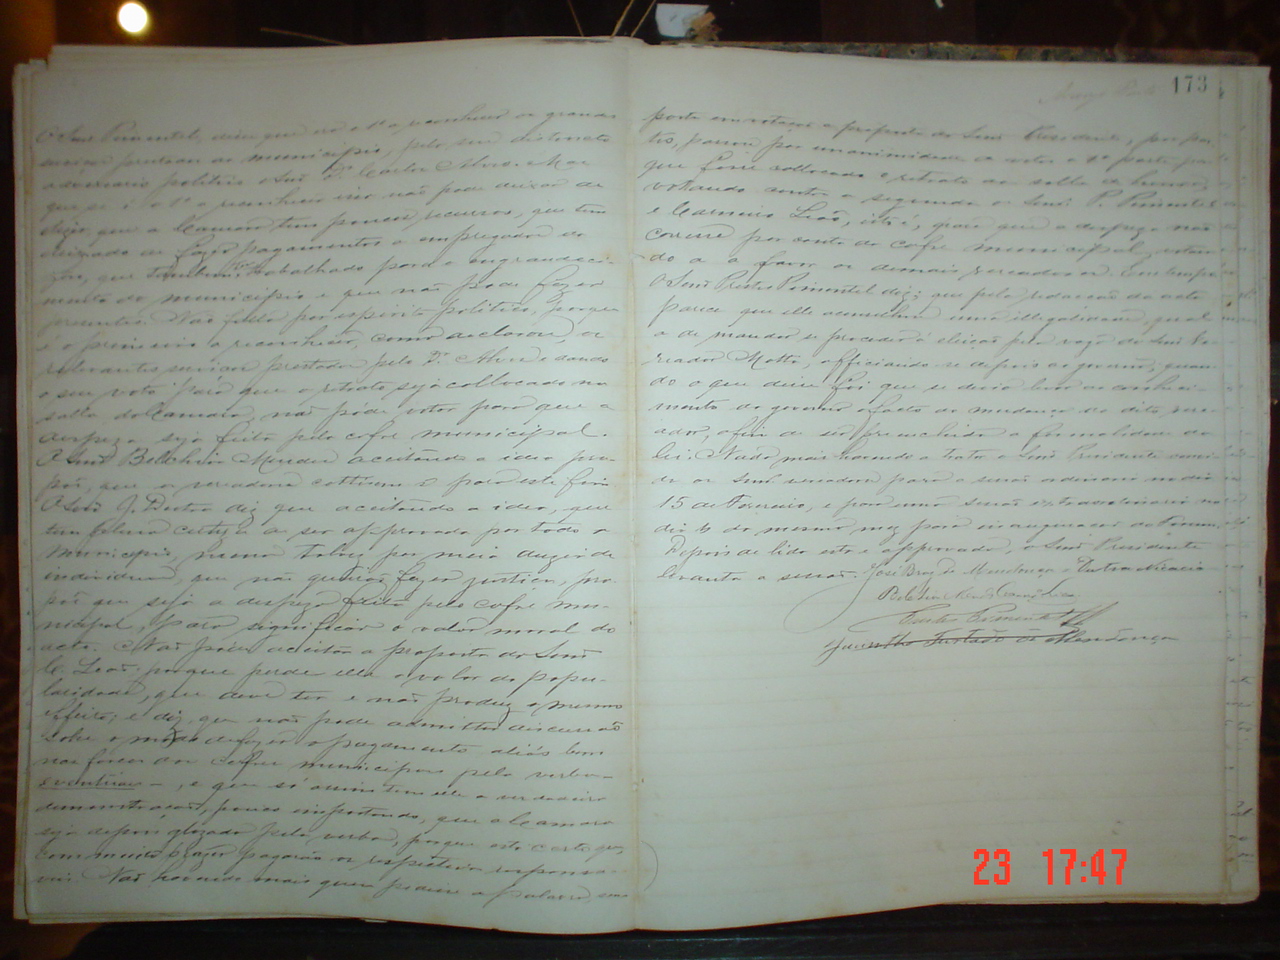 O Snr. Pimentel, disse que era o 1º a reconhecer os grandes
serviços prestados ao municipio, pelo seu distincto
adversario politico o Snr. Dr. Carlos Alves. Mas
que se é o 1º a reconhecer isso não pode deixar de
dizer que a Camara tem poucos recursos, que tem
deixado de fazer pagamentos a empregados da
que tambem tem trabalhado para o engrandeci-
mento do municipio e que não pode fazer
presentes. Não falla por espirito politico, porque
é o primeiro a reconhecer, como declarou, os
relevantes serviços prestados pelo Dr. Alves e dando
o seu voto para que o retrato seja collocado na
salla da Camara, não póde votar para que a
despeza seja feita pelo cofre municipal.
O Snr. Belchior Mendes aceitando a idea pro-
põe, que os vereadores cottisem-se para este fim.
O Snr. J. Dutra diz que aceitando a idea, que
tem plena certeza de ser approvada por todo o
Municipio, menos talvez por meia duzia de
individuos, que não queirão fazer justiça, pro-
põe que seja a despeza feita pelo cofre mu-
nicipal, para significar o valor moral do
acto. Não póde aceitar a proposta do Snr.
C. Leão, porque perde ella o valor da popu-
laridade, que deve ter e não produz o mesmo
effeito; e diz que não pode admittir discussão
sobre o modo de fazer o pagamento aliás bem
nas forças dos cofres municipaes pela verba—
eventuaes—, e que só assim tem elle a verdadeira
demonstração, pouco importando, que a Camara
seja depois glozada pela verba, porque está certo que,
com muito prazer pagarão os respectivos responsa-
veis. Não havendo mais quem pedisse a palavra, e
173
posta em votação a proposta do Snr. Presidente, por par-
tes, passou por unanimidade de votos a 1ª parte para
que fosse collocado o retrato na salla de honra,
votando contra a segunda os Snrs. P. Pimentel
e Carneiro Leão, isto é, para que a despeza não
corresse por conta do cofre municipal, votan-
do a favor os demais vereadores. Em tempo
O Snr. Prestes Pimentel diz: que pela redacção da acta
parece que elle a uma illegalidade, qual
a de mandar se proceder á eleição para vaga do Snr. Ve-
reador Motta, officiando-se depois ao governo; quan-
do o que disse foi que se devia levar ao conheci-
mento do governo o facto da mudança do dito vere-
ador, afim de ser preenchida a formalidade da
lei. Nada mais havendo a tratar o Snr. Presidente convi-
da os Snrs. vereadores para a sessão ordinaria no dia
15 de Fevereiro, e para uma sessão extraordinaria no
dia do mesmo mez para inauguração do Forum.
Depois de lida esta e approvada, o Snr. Presidente
levanta a sessão. José Braz de Mendonça Dutra Nicacio
Belchior Mendes
Prestes Pimentel
Jacintho Furtado de Mendonça
23 17:47